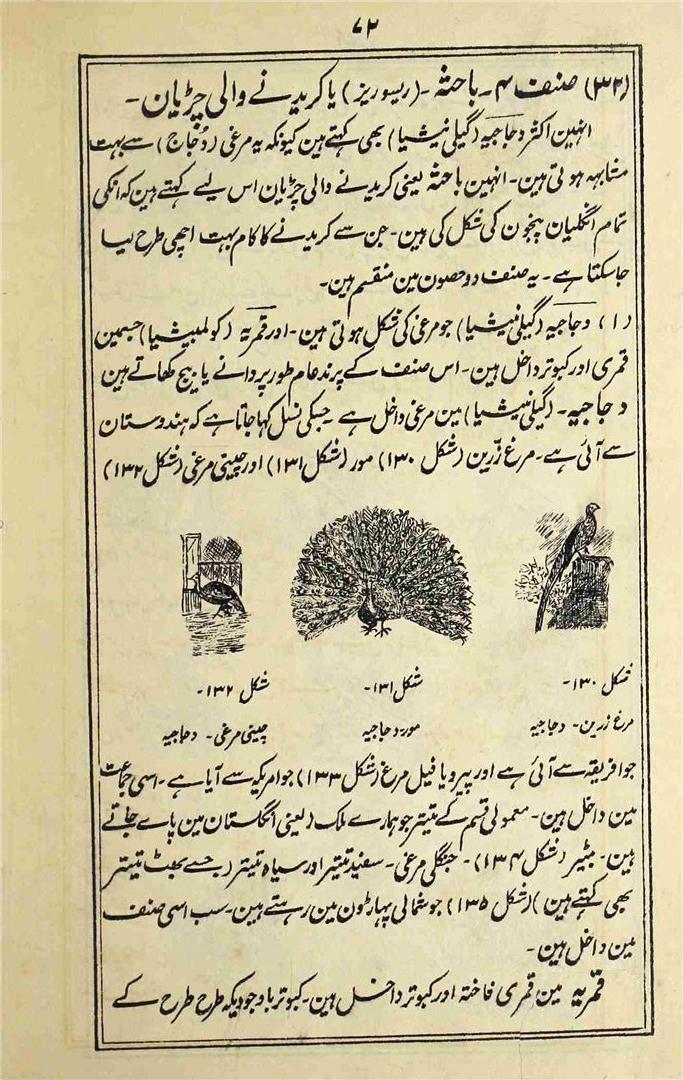 ۷۲
(۳۲) صنف ۴۔ باحثہ ۔ (ریسوریز) یا کریدنے والی چڑیان ۔
انہین اکثر دجاجیہ (گیلی نیشیا) بھی کہتے ہین کیونکہ یہ مرغی (دُجاج) سے بہت
مشابہہ ہوتی ہین ۔ انہین باحثہ یعنی کریدنے والی چڑیان اس لیے کہتے ہین کہ انکی
تمام انگلیان پنجون کی شکل کی ہین ۔ جن سے کریدنے کا کام بہت اچھی طرح لیا
جاسکتا ہے ۔ یہ صنف دو حصون مین منقسم ہین ۔
(۱) دجاجیہ (گیلی نیشیا) جو مرغی کی شکل ہوتی ہین ۔ اور قمریہ (کولمبیشیا) جسمین
قمری اور کبوتر داخل ہین ۔ اس صنف کے پرند عام طور پر دانے یا بیج کھاتے ہین
دجاجیہ ۔ (گیلی نیشیا) مین مرغی داخل ہے ۔ جسکی نسل کہا جاتا ہے کہ ہندوستان
سے آئی ہے ۔ مرغ زرّین (شکل ۱۳۰) مور (شکل ۱۳۱) اور چینی مرغی (شکل ۱۳۲)
شکل ۱۳۰ ۔
مرغ زرین ۔ دجاجیہ
شکل ۱۳۱ ۔
مور ۔ دجاجیہ
شکل ۱۳۲ ۔
چینی مرغی ۔ دجاجیہ
جو افریقہ سے آئی ہے اور پیرو یا فیل مرغ (شکل ۱۳۳) جو امریکہ سے آیا ہے ۔ اسی جماعت
مین داخل ہین ۔ معمولی قسم کے تیتر جو ہمارے ملک (یعنی انگلستان مین پاے جاتے
ہین ۔ بٹیر (شکل ۱۳۴) ۔ جنگلی مرغی ۔ سفید تیتر اور سیاہ تیتر (جسے بھٹ تیتر
بھی کہتے ہین) (شکل ۱۳۵) جو شمالی پہاڑون مین رہتے ہین ۔ سب اسی صنف
مین داخل ہین ۔
قمریہ مین قمری فاختہ اور کبوتر داخل ہین ۔ کبوتر باوجودیکہ طرح طرح کے